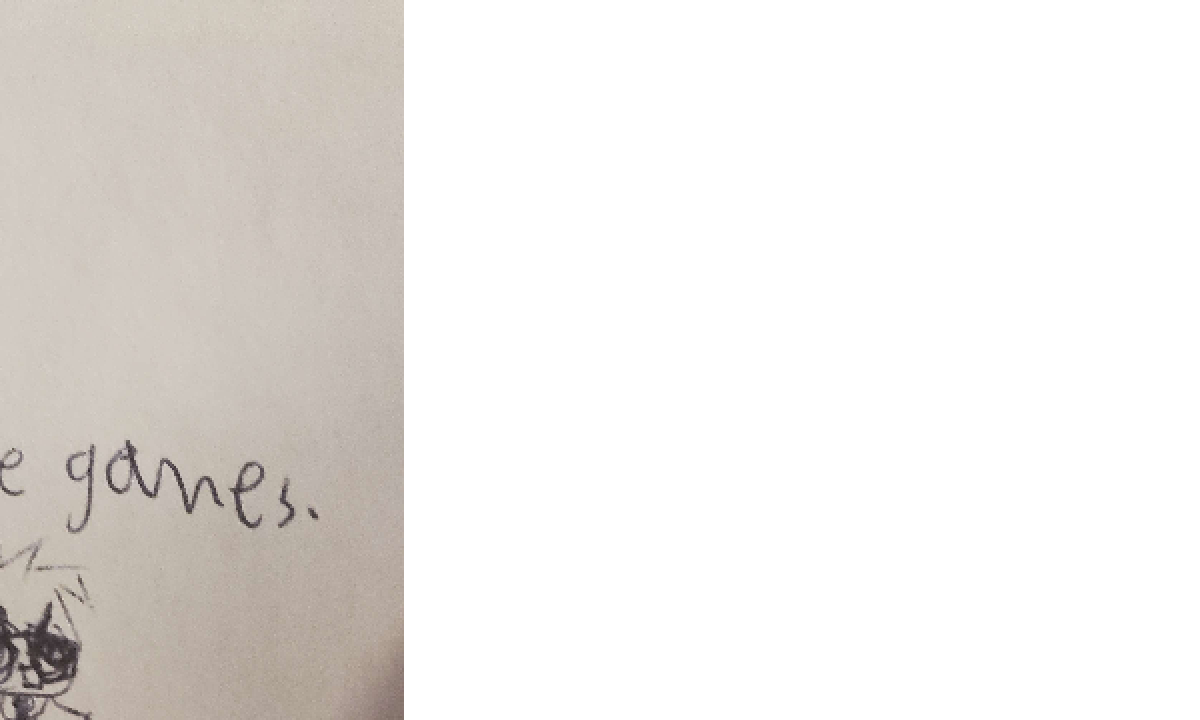 e games.